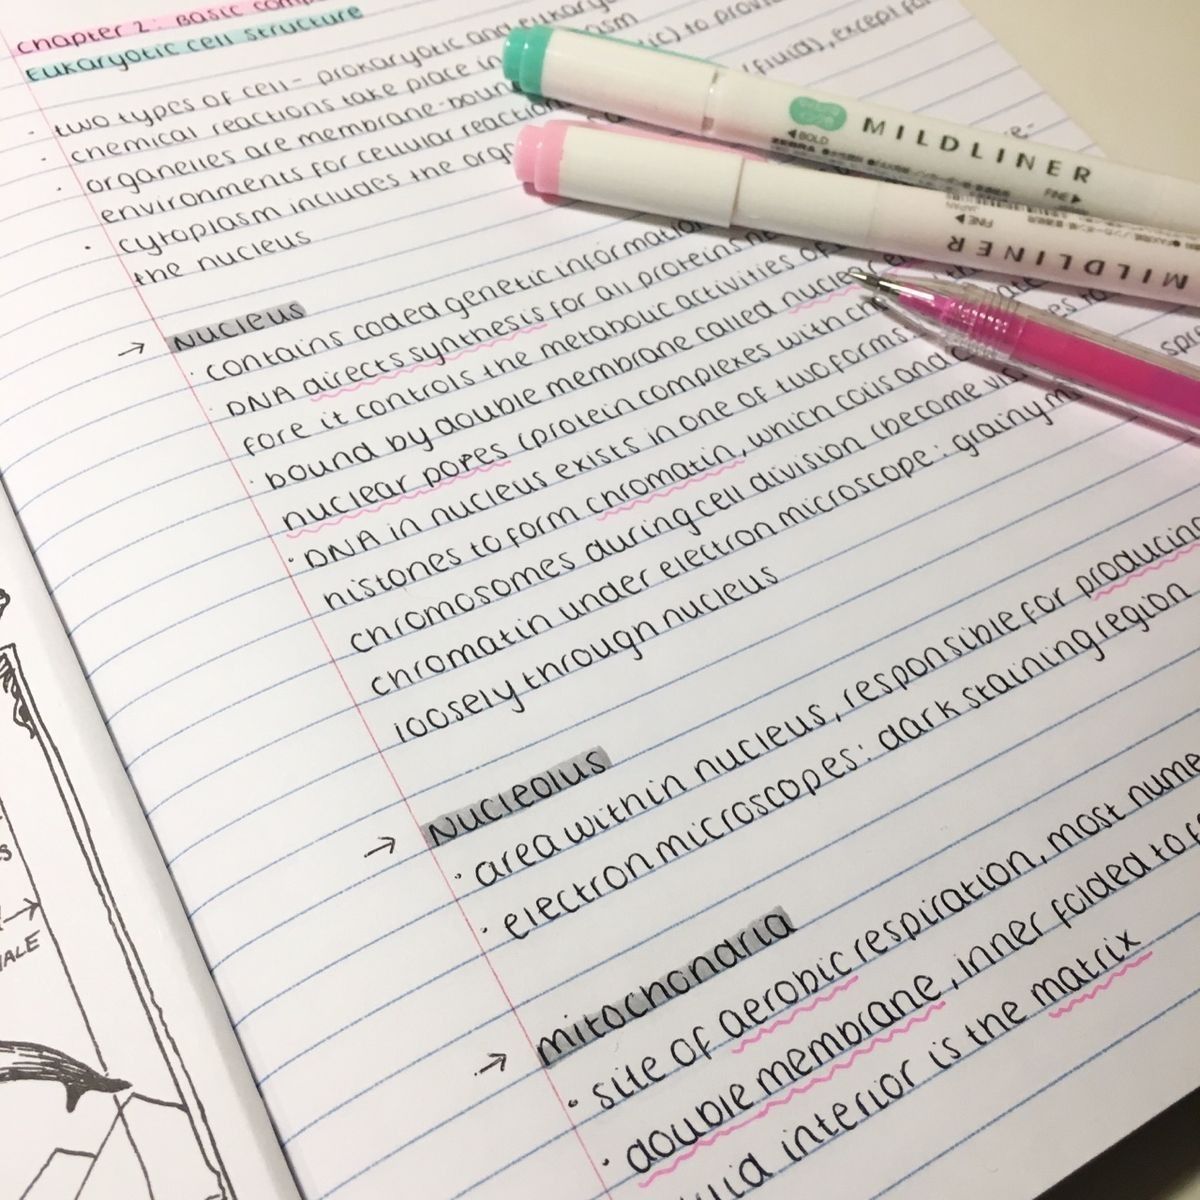 Chapter 2: Basic comp
Eukaryotic cell structure
· two types of cell - prokaryotic and eukaryo
· chemical reactions take place in asm
· organelles are membrane-boun ic) to provi
environments for cellular reaction
· cytoplasm includes the orga (fluid), except for
the nucleus
→ Nucleus
· contains coded genetic information
· DNA directs synthesis for all proteins ne
fore it controls the metabolic activities of
· bound by double membrane called nuclear en
nuclear pores (protein complexes with ch
· DNA in nucleus exists in one of two forms:
histones to form chromatin, which coils and c
chromosomes during cell division (become vis
chromatin under electron microscope: grainy m
loosely through nucleus
→ Nucleolus
· area within nucleus, responsible for producing
· electron microscopes: dark staining region
→ mitochondria
· site of aerobic respiration, most nume
· double membrane, inner folded to f
uid interior is the matrix
MILDLINER
◀BOLD
ZEBRA
FINE▶
FINE▶
JAPAN
MILDLINER
ALE